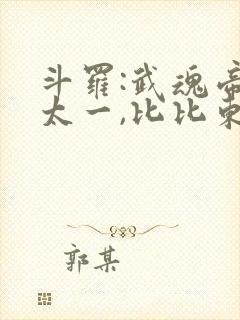 斗羅:武魂帝
太一,比比東
郭某